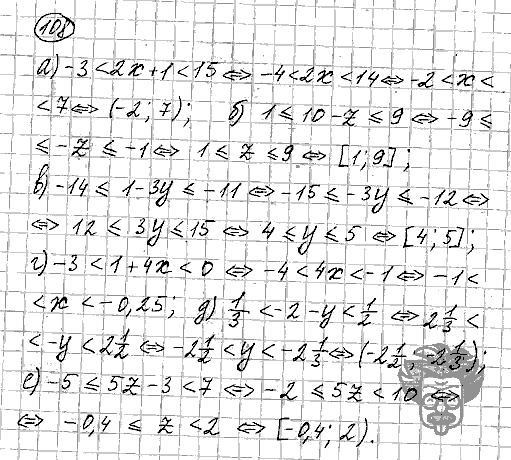 108
а) -3 < 2x + 1 < 15 ⇔ -4 < 2x < 14 ⇔ -2 < x <
< 7 ⇔ (-2; 7); б) 1 ≤ 10 - z ≤ 9 ⇔ -9 ≤
≤ -z ≤ -1 ⇔ 1 ≤ z ≤ 9 ⇔ [1; 9];
в) -14 ≤ 1 - 3y ≤ -11 ⇔ -15 ≤ -3y ≤ -12 ⇔
⇔ 12 ≤ 3y ≤ 15 ⇔ 4 ≤ y ≤ 5 ⇔ [4; 5];
г) -3 < 1 + 4x < 0 ⇔ -4 < 4x < -1 ⇔ -1 <
< x < -0,25; д) 1/3 < -2 - y < 1/2 ⇔ 2 1/3 <
< -y < 2 1/2 ⇔ -2 1/2 < y < -2 1/3 ⇔ (-2 1/2; -2 1/3);
е) -5 ≤ 5z - 3 < 7 ⇔ -2 ≤ 5z < 10 ⇔
⇔ -0,4 ≤ z < 2 ⇔ [-0,4; 2).